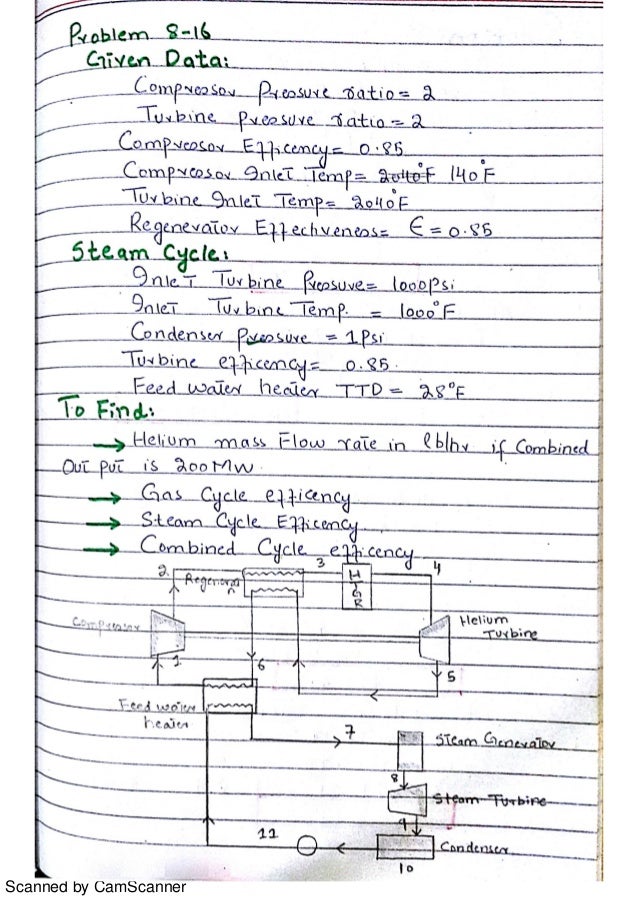 Problem 8-16
Given Data:
Compressor Pressure ratio = 2
Turbine pressure ratio = 2
Compressor Efficency = 0.85
Compressor Inlet Temp = 2040°F 140°F
Turbine Inlet Temp = 2040°F
Regenerator Effectiveness = ϵ = 0.85
Steam Cycle:
Inlet Turbine Pressure = 1000psi
Inlet Turbine Temp. = 1000°F
Condenser Pressure = 1Psi
Turbine efficency = 0.85.
Feed water heater TTD = 28°F
To Find:
→ Helium mass Flow rate in lb/hr if Combined
Out put is 200MW.
→ Gas Cycle efficency
→ Steam Cycle Efficency
→ Combined Cycle efficency
2 Regenera 3 HTGR 4
Compressor 1 Helium Turbine
6 5
Feed water heater
7 Steam Generator
8
Steam Turbine
9
11 Condenser
10
Scanned by CamScanner